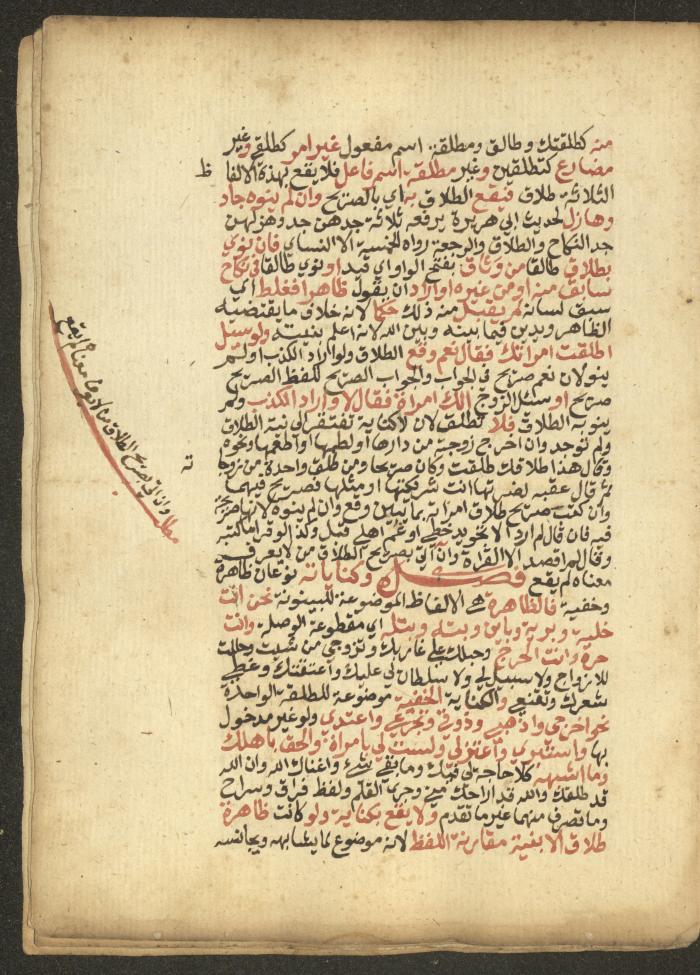 منه كطلقتك وطالق ومطلقة اسم مفعول غير امر كطلقي وغير
مضارع كتطلقين وغير مطلقة اسم فاعل فلا يقع بهذه الالفاظ
الثلاثة طلاق فيقع الطلاق به اي بالصريح وان لم ينوه جاد
وهازل لحديث ابي هريرة يرفعه ثلاثة جدهن جد وهزلهن
جد النكاح والطلاق والرجعة رواه الخمسة الا النساي فان نوي
بطلاق طالقا من وثاق بفتح الواو اي قيد او نوي طالقا في نكاح
سابق منه او من غيره او اراد ان يقول طاهرا فغلط اي
سبق لسانه لم يقبل منه ذلك حكما لانه خلاف ما يقتضيه
الظاهر ويدين فيما بينه وبين الله لانه اعلم بنيته ولو سئل
اطلقت امراتك فقال نعم وقع الطلاق ولو اراد الكذب او لم
ينو لان نعم صريح في الجواب والجواب الصريح للفظ الصريح
صريح او سئل الزوج الك امراة فقال لا واراد الكذب ولم
ينو به الطلاق فلا تطلق لان لا كناية تفتقر الي نية الطلاق
ولم توجد وان اخرج زوجته من دارها او لطمها او اطعمها ونحوه
وقال هذا طلاقك طلقت وكان صريحا ومن طلق واحدة من زوجاته
ثم قال عقبه لضرتها انت شركتها او مثلها فصريح فيهما
وان كتب صريح طلاق امراته بما يبين وقع وان لم ينوه لانها صريحة
فيه فان قال لم ارد الا تجويد خطي او غم اهلي قبل وكذا لو قرا ما كتبه
وقال لم اقصد الا القراة وان اتي بصريح الطلاق من لا يعرف
معناه لم يقع فصل وكناياته نوعان ظاهرة
وخفية فالظاهرة هي الالفاظ الموضوعة للبينونة نحو انت
خلية وبرية وباين وبتة وبتلة اي مقطوعة الوصلة وانت
حرة وانت الحرج وحبلك علي غاربك وتزوجي من شيت وحللت
للازواج ولا سبيل لي ولا سلطان لي عليك واعتقتك وغطي
شعرك وتقنعي والكناية الخفية موضوعة للطلقة الواحدة
نحو اخرجي واذهبي وذوقي وتجرعي واعتدي ولو غير مدخول
بها واستبري واعتزلي ولست لي بامراة والحقي باهلك
وما اشبهه كلا حاجة لي فيك وما بقي شيء واغناك الله وان الله
قد طلقك والله قد اراحك مني وجري القلم ولفظ فراق وسراح
وما تصرف منهما غير ما تقدم ولا يقع بكناية ولو كانت ظاهرة
طلاق الا بنية مقارنة اللفظ لانه موضوع لما يشابهه ويجانسه
مطلب وان اتي بصريح الطلاق من لا يعرف معناه لم يقع